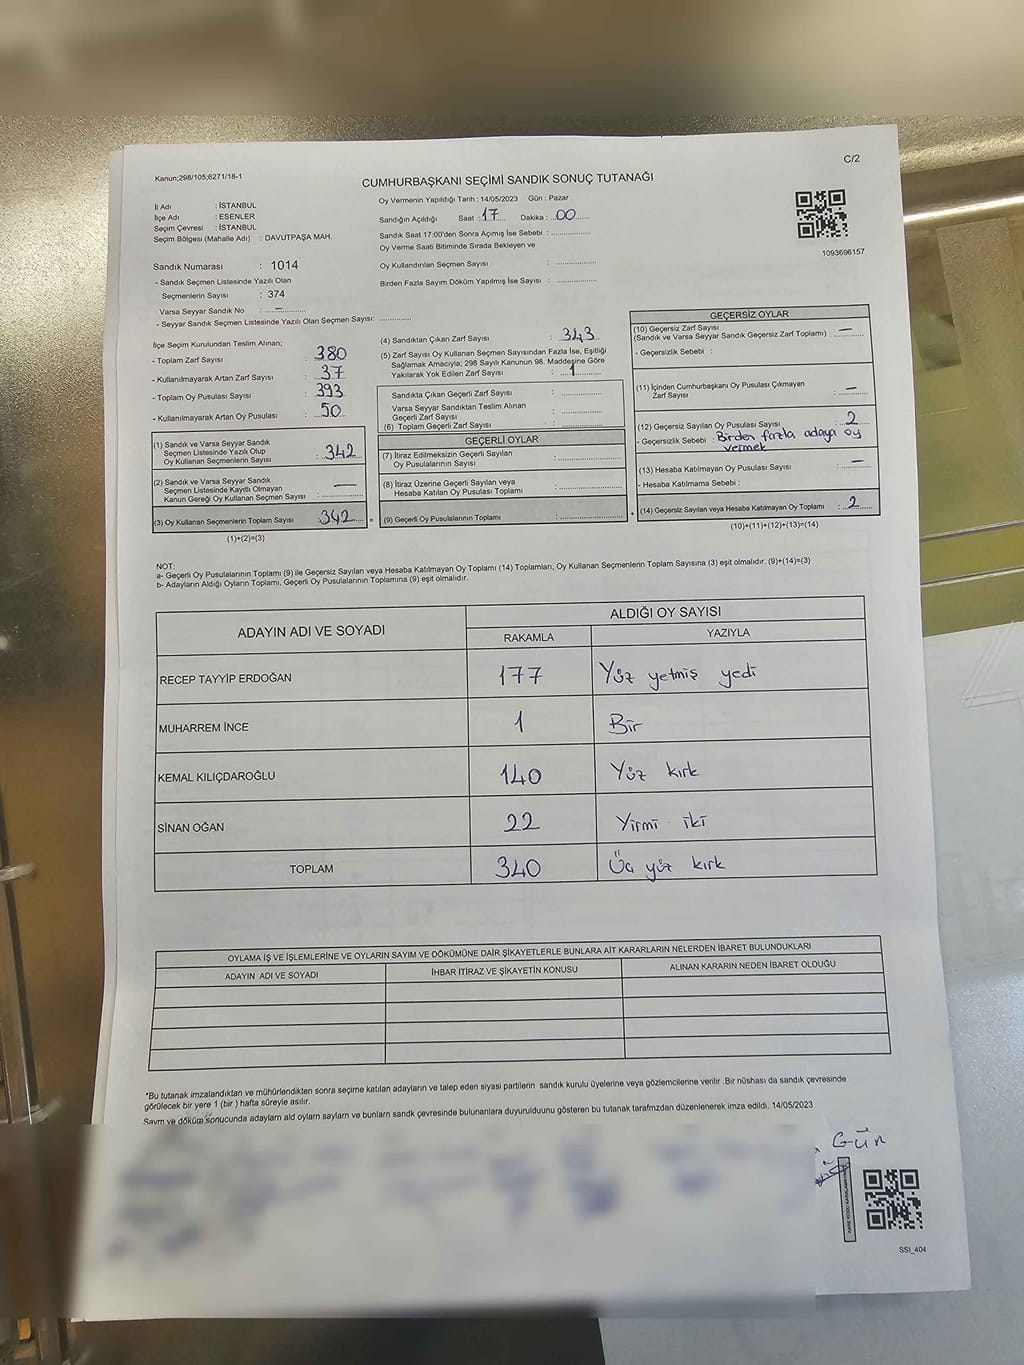 Kanun;298/105;6271/18-1
C/2
CUMHURBAŞKANI SEÇİMİ SANDIK SONUÇ TUTANAĞI
İl Adı : İSTANBUL
İlçe Adı : ESENLER
Seçim Çevresi : İSTANBUL
Seçim Bölgesi (Mahalle Adı) : DAVUTPAŞA MAH.
Sandık Numarası : 1014
- Sandık Seçmen Listesinde Yazılı Olan
Seçmenlerin Sayısı : 374
Varsa Seyyar Sandık No : —
- Seyyar Sandık Seçmen Listesinde Yazılı Olan Seçmen Sayısı: ............
Oy Vermenin Yapıldığı Tarih : 14/05/2023 Gün : Pazar
Sandığın Açıldığı Saat : 17 Dakika : 00
Sandık Saat 17:00'den Sonra Açımış İse Sebebi : ............
Oy Verme Saati Bitiminde Sırada Bekleyen ve
Oy Kullandırılan Seçmen Sayısı : ............
Birden Fazla Sayım Döküm Yapılmış İse Sayısı : ............
1093696157
İlçe Seçim Kurulundan Teslim Alınan;
- Toplam Zarf Sayısı : 380
- Kullanılmayarak Artan Zarf Sayısı : 37
- Toplam Oy Pusulası Sayısı : 393
- Kullanılmayarak Artan Oy Pusulası : 50
(1) Sandık ve Varsa Seyyar Sandık
Seçmen Listesinde Yazılı Olup
Oy Kullanan Seçmenlerin Sayısı : 342
(2) Sandık ve Varsa Seyyar Sandık
Seçmen Listesinde Kayıtlı Olmayan
Kanun Gereği Oy Kullanan Seçmen Sayısı : —
(3) Oy Kullanan Seçmenlerin Toplam Sayısı : 342
(1)+(2)=(3)
(4) Sandıktan Çıkan Zarf Sayısı : 343
(5) Zarf Sayısı Oy Kullanan Seçmen Sayısından Fazla İse, Eşitliği
Sağlamak Amacıyla; 298 Sayılı Kanunun 98. Maddesine Göre
Yakılarak Yok Edilen Zarf Sayısı : 1
Sandıkta Çıkan Geçerli Zarf Sayısı : ............
Varsa Seyyar Sandıktan Teslim Alınan
Geçerli Zarf Sayısı : ............
(6) Toplam Geçerli Zarf Sayısı : ............
GEÇERLİ OYLAR
(7) İtiraz Edilmeksizin Geçerli Sayılan
Oy Pusulalarının Sayısı : ............
(8) İtiraz Üzerine Geçerli Sayılan veya
Hesaba Katılan Oy Pusulası Toplamı : ............
= (9) Geçerli Oy Pusulalarının Toplamı : ............
GEÇERSİZ OYLAR
(10) Geçersiz Zarf Sayısı
(Sandık ve Varsa Seyyar Sandık Geçersiz Zarf Toplamı) : —
- Geçersizlik Sebebi :
(11) İçinden Cumhurbaşkanı Oy Pusulası Çıkmayan
Zarf Sayısı : —
(12) Geçersiz Sayılan Oy Pusulası Sayısı : 2
- Geçersizlik Sebebi : Birden fazla adaya oy
vermek
(13) Hesaba Katılmayan Oy Pusulası Sayısı : —
- Hesaba Katılmama Sebebi :
+ (14) Geçersiz Sayılan veya Hesaba Katılmayan Oy Toplamı : 2
(10)+(11)+(12)+(13)=(14)
NOT:
a- Geçerli Oy Pusulalarının Toplamı (9) ile Geçersiz Sayılan veya Hesaba Katılmayan Oy Toplamı (14) Toplamları, Oy Kullanan Seçmenlerin Toplam Sayısına (3) eşit olmalıdır. (9)+(14)=(3)
b- Adayların Aldığı Oyların Toplamı, Geçerli Oy Pusulalarının Toplamına (9) eşit olmalıdır.
ADAYIN ADI VE SOYADI ALDIĞI OY SAYISI
RAKAMLA YAZIYLA
RECEP TAYYİP ERDOĞAN 177 Yüz yetmiş yedi
MUHARREM İNCE 1 Bir
KEMAL KILIÇDAROĞLU 140 Yüz kırk
SİNAN OĞAN 22 Yirmi iki
TOPLAM 340 Üç yüz kırk
OYLAMA İŞ VE İŞLEMLERİNE VE OYLARIN SAYIM VE DÖKÜMÜNE DAİR ŞİKAYETLERLE BUNLARA AİT KARARLARIN NELERDEN İBARET BULUNDUKLARI
ADAYIN ADI VE SOYADI İHBAR İTİRAZ VE ŞİKAYETİN KONUSU ALINAN KARARIN NEDEN İBARET OLDUĞU
*Bu tutanak imzalandıktan ve mühürlendikten sonra seçime katılan adayların ve talep eden siyasi partilerin sandık kurulu üyelerine veya gözlemcilerine verilir .Bir nüshası da sandık çevresinde
görülecek bir yere 1 (bir ) hafta süreyle asılır.
Sayım ve döküm sonucunda adayların ald oyların sayların ve bunların sandk çevresinde bulunanlara duyurulduunu gösteren bu tutanak tarafmzdan düzenlenerek imza edildi. 14/05/2023
GÜR
SSI_404